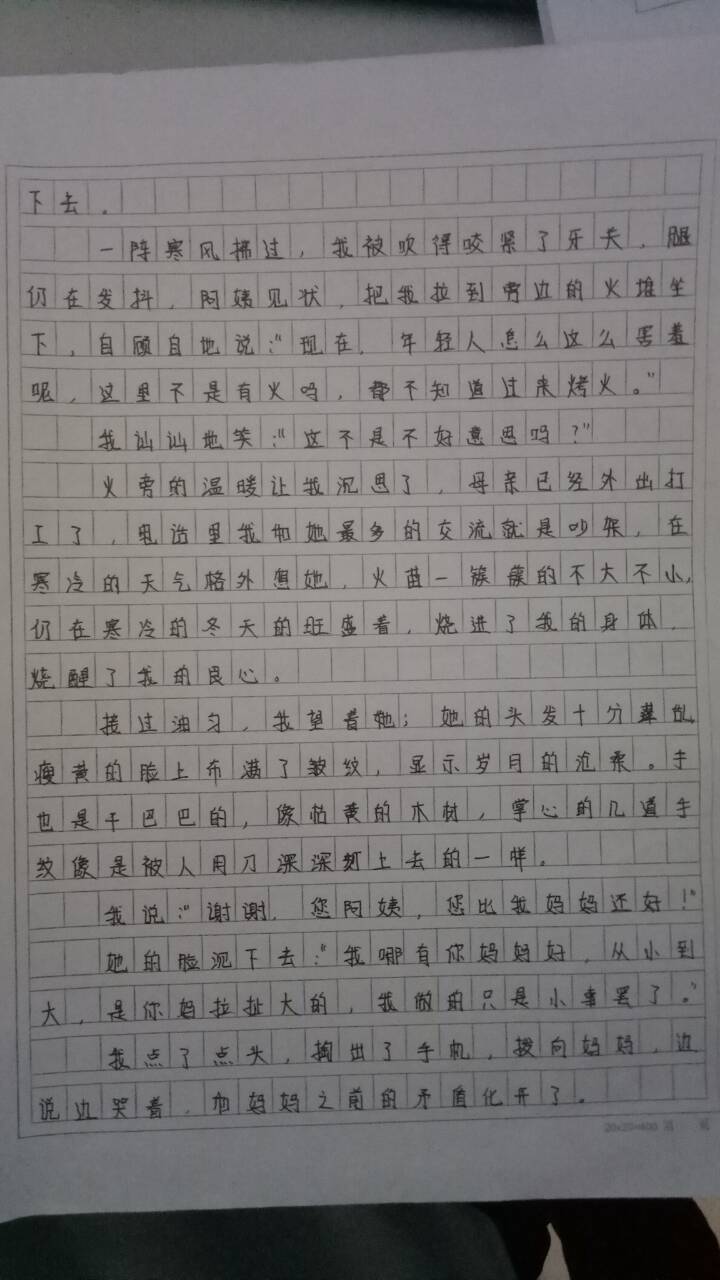 下去。
一阵寒风拂过，我被吹得咬紧了牙关，腿
仍在发抖，阿姨见状，把我拉到旁边的火堆坐
下，自顾自地说：“现在，年轻人怎么这么害羞
呢，这里不是有火吗，都不知道过来烤火。”
我讪讪地笑：“这不是不好意思吗？”
火旁的温暖让我沉思了，母亲已经外出打
工了，电话里我和她最多的交流就是吵架，在
寒冷的天气格外想她，火苗一簇簇的不大不小，
仍在寒冷的冬天的旺盛着，烧进了我的身体，
烧醒了我的良心。
接过油勺，我望着她；她的头发十分蓬乱
瘦黄的脸上布满了皱纹，显示岁月的沧桑。手
也是干巴巴的，像枯黄的木材，掌心的几道手
纹像是被人用刀深深刻上去的一样。
我说：“谢谢，您阿姨，您比我妈妈还好！”
她的脸沉下去：“我哪有你妈妈好，从小到
大，是你妈拉扯大的，我做的只是小事罢了。”
我点了点头，掏出了手机，拨向妈妈，边
说边哭着，和妈妈之前的矛盾化开了。
20×20=400